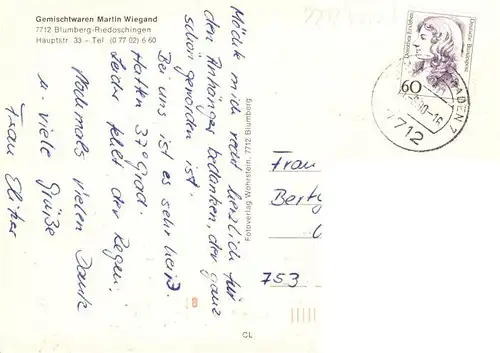 Gemischtwaren Martin Wiegand
7712 Blumberg-Riedöschingen
Hauptstr. 33 – Tel. (0 77 02) 6 60
Möchte mich recht herzlich für
den Anhänger bedanken, der ganz
schön geworden ist.
Bei uns ist es sehr heiß.
Hatten 37° Grad.
Leider fehlt der Regen.
Nochmals vielen Dank
u. viele Grüße
Frau
Fotoverlag Wohrstein, 7712 Blumberg
Deutsche Bundespost
60
7712
Frau
753
CL